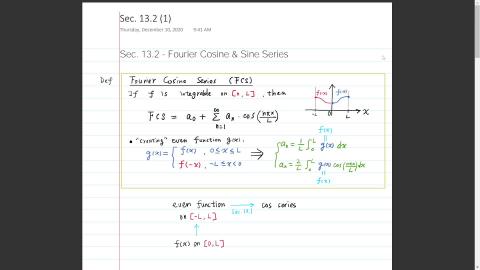 Sec. 13.2 (1)
Thursday, December 10, 2020 9:41 AM
Sec. 13.2 - Fourier Cosine & Sine Series
Def Fourier Cosine Series (FCS)
If f is integrable on [0, L], then
FCS = a₀ + ∑_{n=1}^{∞} aₙ · cos(nπx/L)
f(x) f(x)
-L 0 L x
• "creating" even function g(x):
g(x) = { f(x), 0≤x≤L
f(-x), -L≤x<0
⇒ { a₀ = 1/L ∫₀ᴸ g(x) dx
aₙ = 2/L ∫₀ᴸ g(x) cos(nπx/L) dx
f(x)
||
||
f(x)
even function → cos series
on [-L, L] [Sec. 13.1]
↑
f(x) on [0, L]